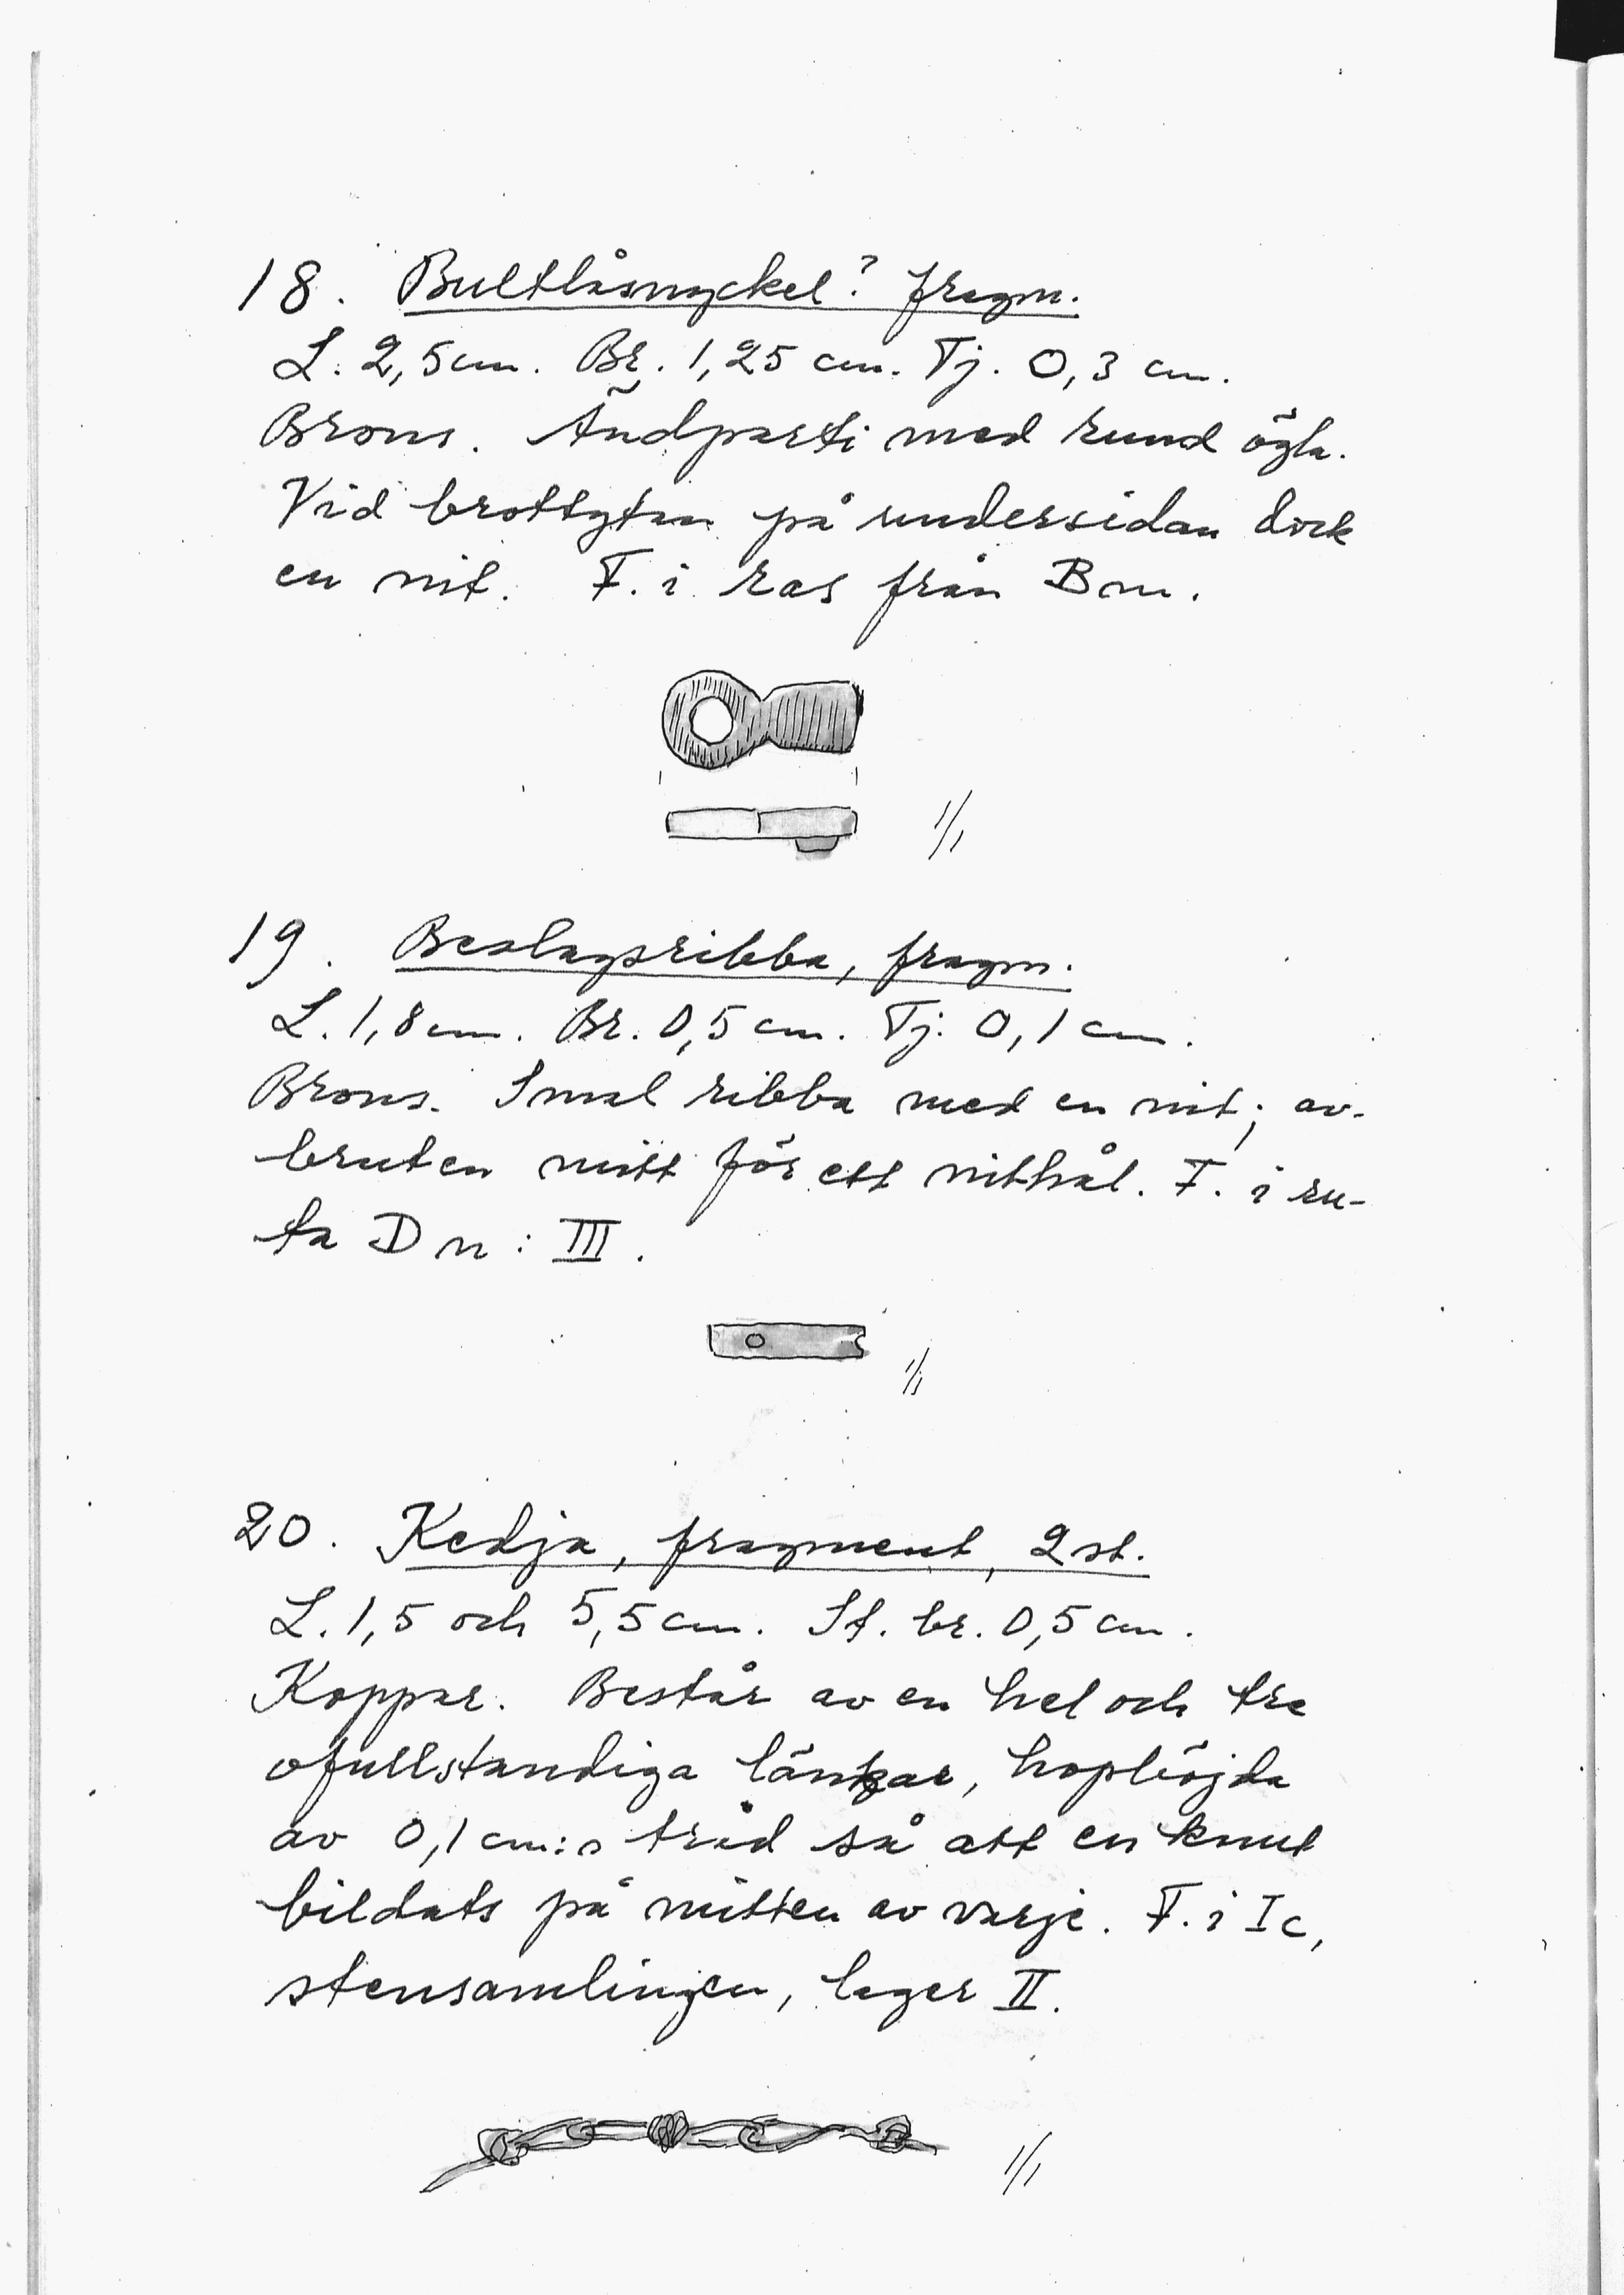 18. Bultlåsnyckel? fragm.
L. 2,5 cm. Br. 1,25 cm. Tj. 0,3 cm.
Brons. Ändparti med rund ögla.
Vid brottytan på undersidan dock
en nit. F. i ras från Bm.
1/1
19. Beslagsribba, fragm.
L. 1,8 cm. Br. 0,5 cm. Tj: 0,1 cm.
Brons. Smal ribba med en nit; av-
bruten mitt för ett nithål. F. i ru-
ta Dn: III.
1/1
20. Kedja, fragment, 2 st.
L. 1,5 och 5,5 cm. St. br. 0,5 cm.
Koppar. Består av en hel och tre
ofullstandiga länkar, hopböjda
av 0,1 cm:s tråd så att en knut
bildats på mitten av varje. F. i Ic,
stensamlingen, lager II.
1/1